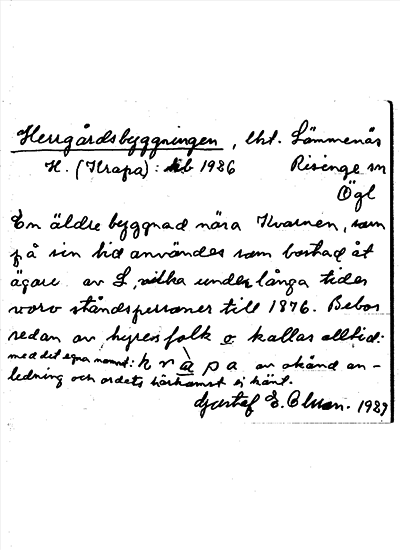 Herrgårdsbyggningen, lht. Lämmenäs
H. (Krapa): 1926 Risinge sn
Ögl
En äldre byggnad nära Kvarnen, som
på sin tid användes som bostad åt
ägare av L, vilka under långa tider
voro ståndspersoner till 1876. Bebos
redan av hyresfolk o kallas alltid:
med det egna namnet: k r a p a av okänd an-
ledning och ordets härkomst ej känt.
Gustaf E. Olsson. 1929